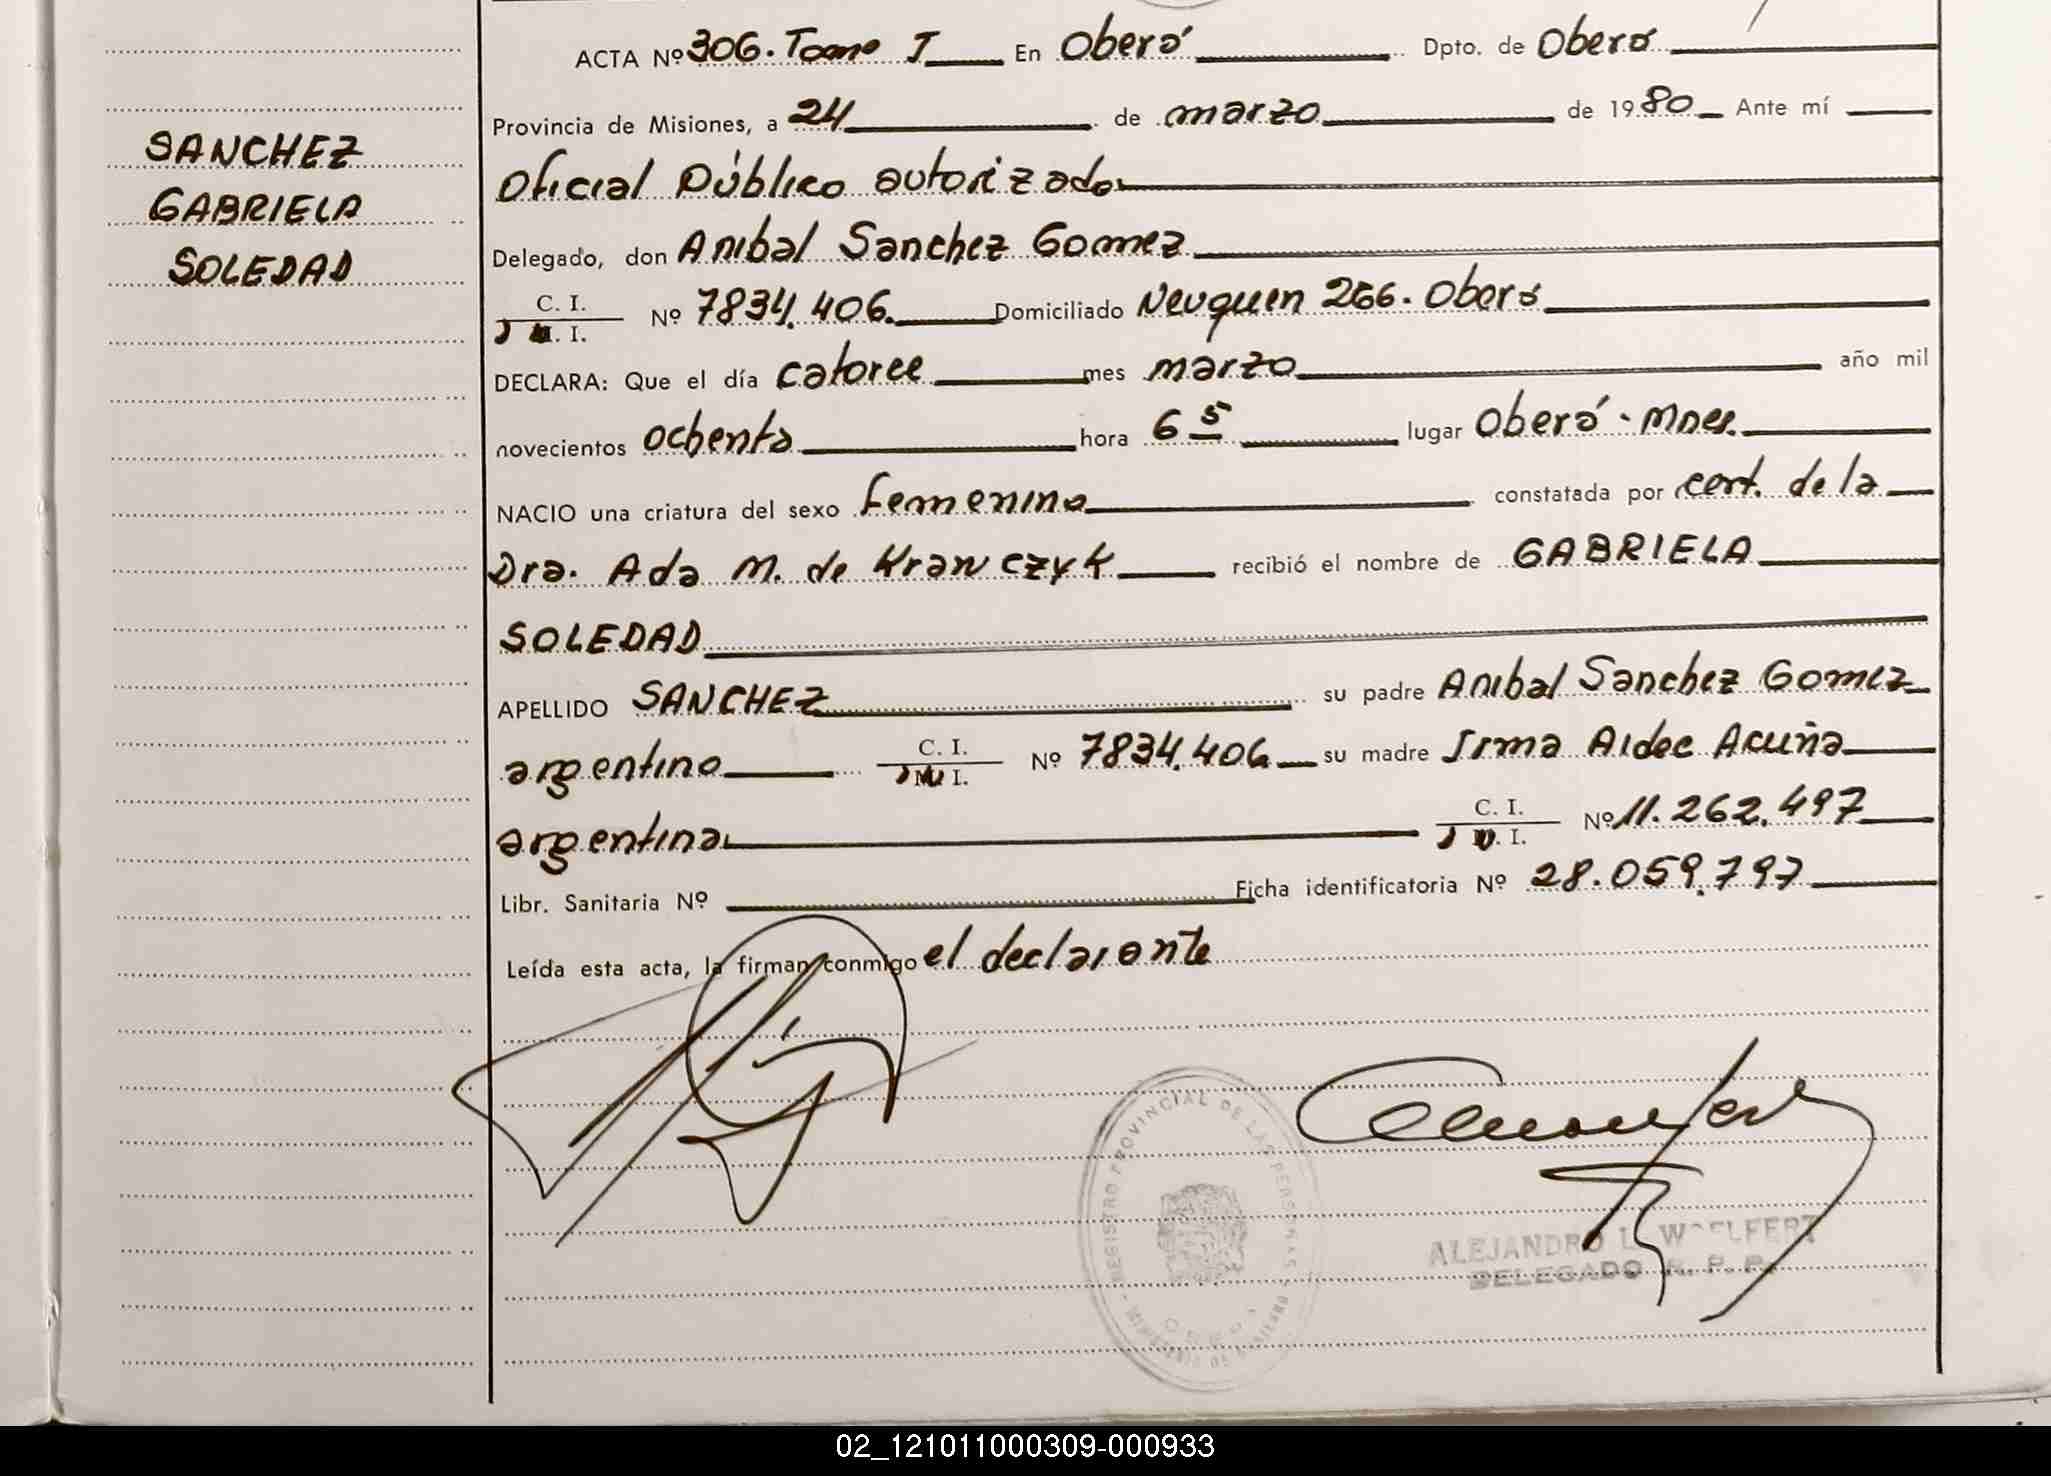 ACTA Nº 306. Tomo I En Oberá Dpto. de Oberá
Provincia de Misiones, a 24 de marzo de 1980 Ante mí
Oficial Público autorizado
Delegado, don Anibal Sanchez Gomez
C. I. Nº 7834.406. Domiciliado Neuquen 266. Oberá
M. I.
DECLARA: Que el día catorce mes marzo año mil
novecientos ochenta hora 6 5 lugar Oberá - Mnes.
NACIO una criatura del sexo femenino constatada por cert. de la
Dra. Ada M. de Krawczyk recibió el nombre de GABRIELA
SOLEDAD
APELLIDO SANCHEZ su padre Anibal Sanchez Gomez
argentino C. I. Nº 7834.406 su madre Irma Aidee Acuña
M. I.
argentina C. I. Nº 11.262.497
. I.
Libr. Sanitaria Nº Ficha identificatoria Nº 28.059.797
Leída esta acta, la firman conmigo el declarante
SANCHEZ
GABRIELA
SOLEDAD
REGISTRO PROVINCIAL DE LAS PERSONAS
ALEJANDRO L. WOELFERT
DELEGADO R. P. P.
02_121011000309-000933